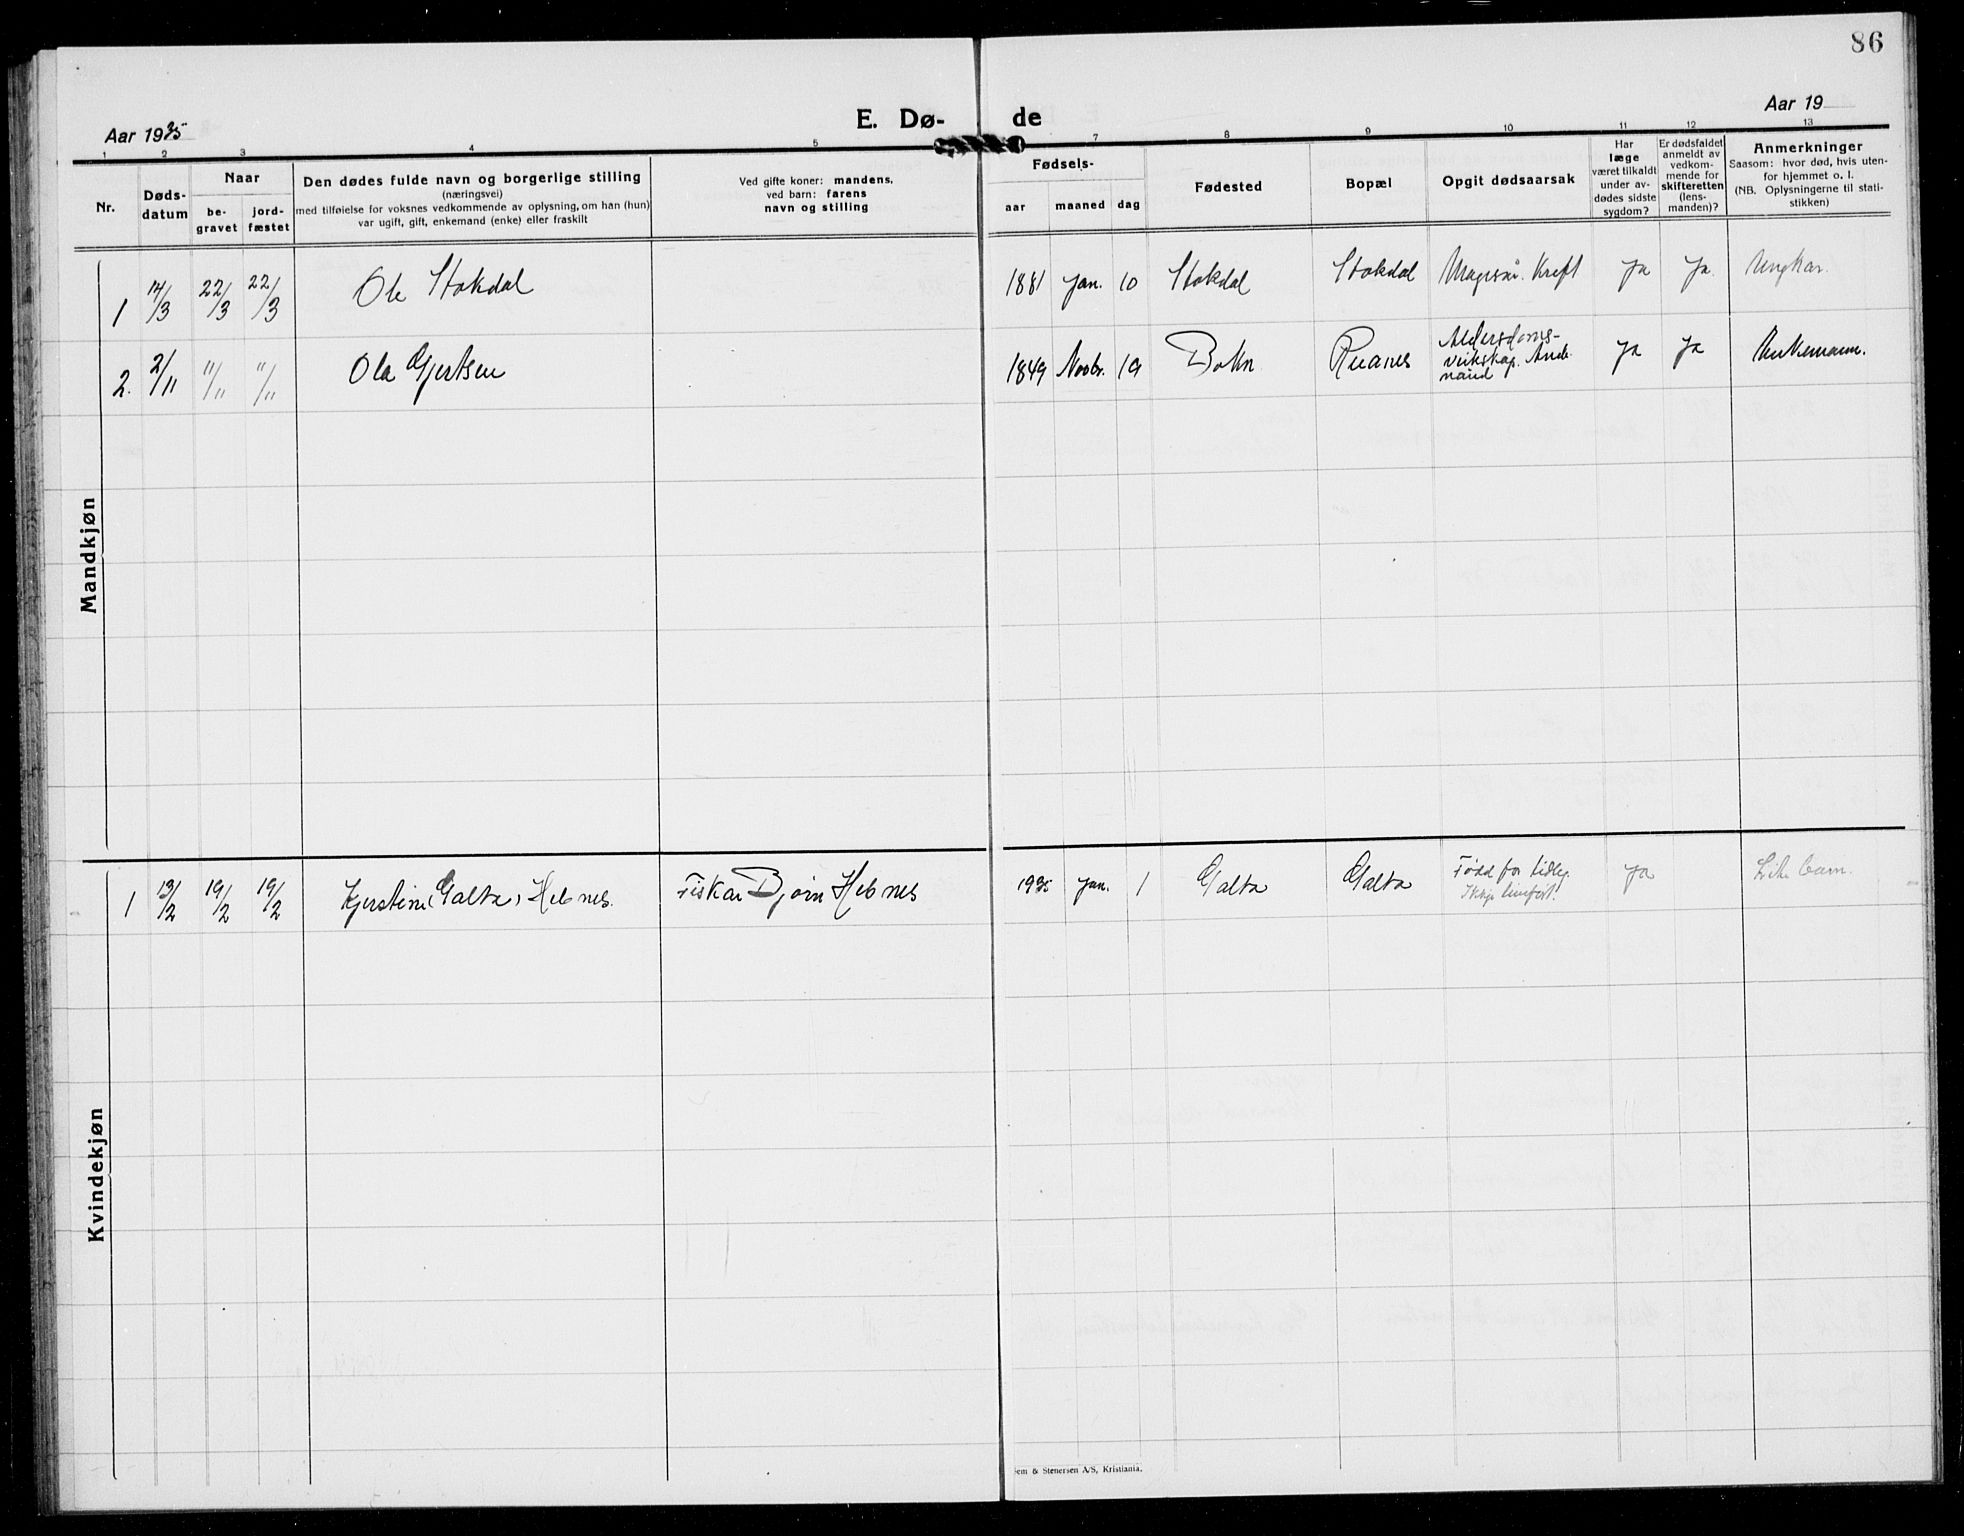 86
Aar 1935
E. Dø-
de
Aar 19
1 2 3 4 5 7 8 9 10 11 12 13
Nr.
Døds-
datum
Naar
be-
gravet
jord-
fæstet
Den dødes fulde navn og borgerlige stilling
(næringsvei)
med tilføielse for voksnes vedkommende av oplysning, om han (hun)
var ugift, gift, enkemand (enke) eller fraskilt
Ved gifte koner: mandens,
ved barn: farens
navn og stilling
Fødsels-
aar maaned dag
Fødested
Bopæl
Opgit dødsaarsak
Har
læge
været tilkaldt
under av-
dødes sidste
sygdom?
Er dødsfaldet
anmeldt av
vedkom-
mende for
skifteretten
(lens-
manden)?
Anmerkninger
Saasom: hvor død, hvis uten-
for hjemmet o. l.
(NB. Oplysningerne til stati-
stikken)
Mandkjøn
1 14/3 22/3 22/3 Ole Stokdal 1881 Jan. 10 Stokdal Stokdal Magesår. Kreft Ja Ja Ungkar.
2. 2/11 11/11 11/11 Ola Gjertsen 1849 Novbr. 19 Bokn Ja Ja Enkemann.
Kvindekjøn
1 13/2 19/2 19/2 Kjerstine (Galta) Hebnes. Fiskar Bjørn Hebnes 1935 Jan. 1 Galta Galta Fødd for tidleg. Ja Lite barn.
Ikkje
em & Stenersen A/S, Kristiania.